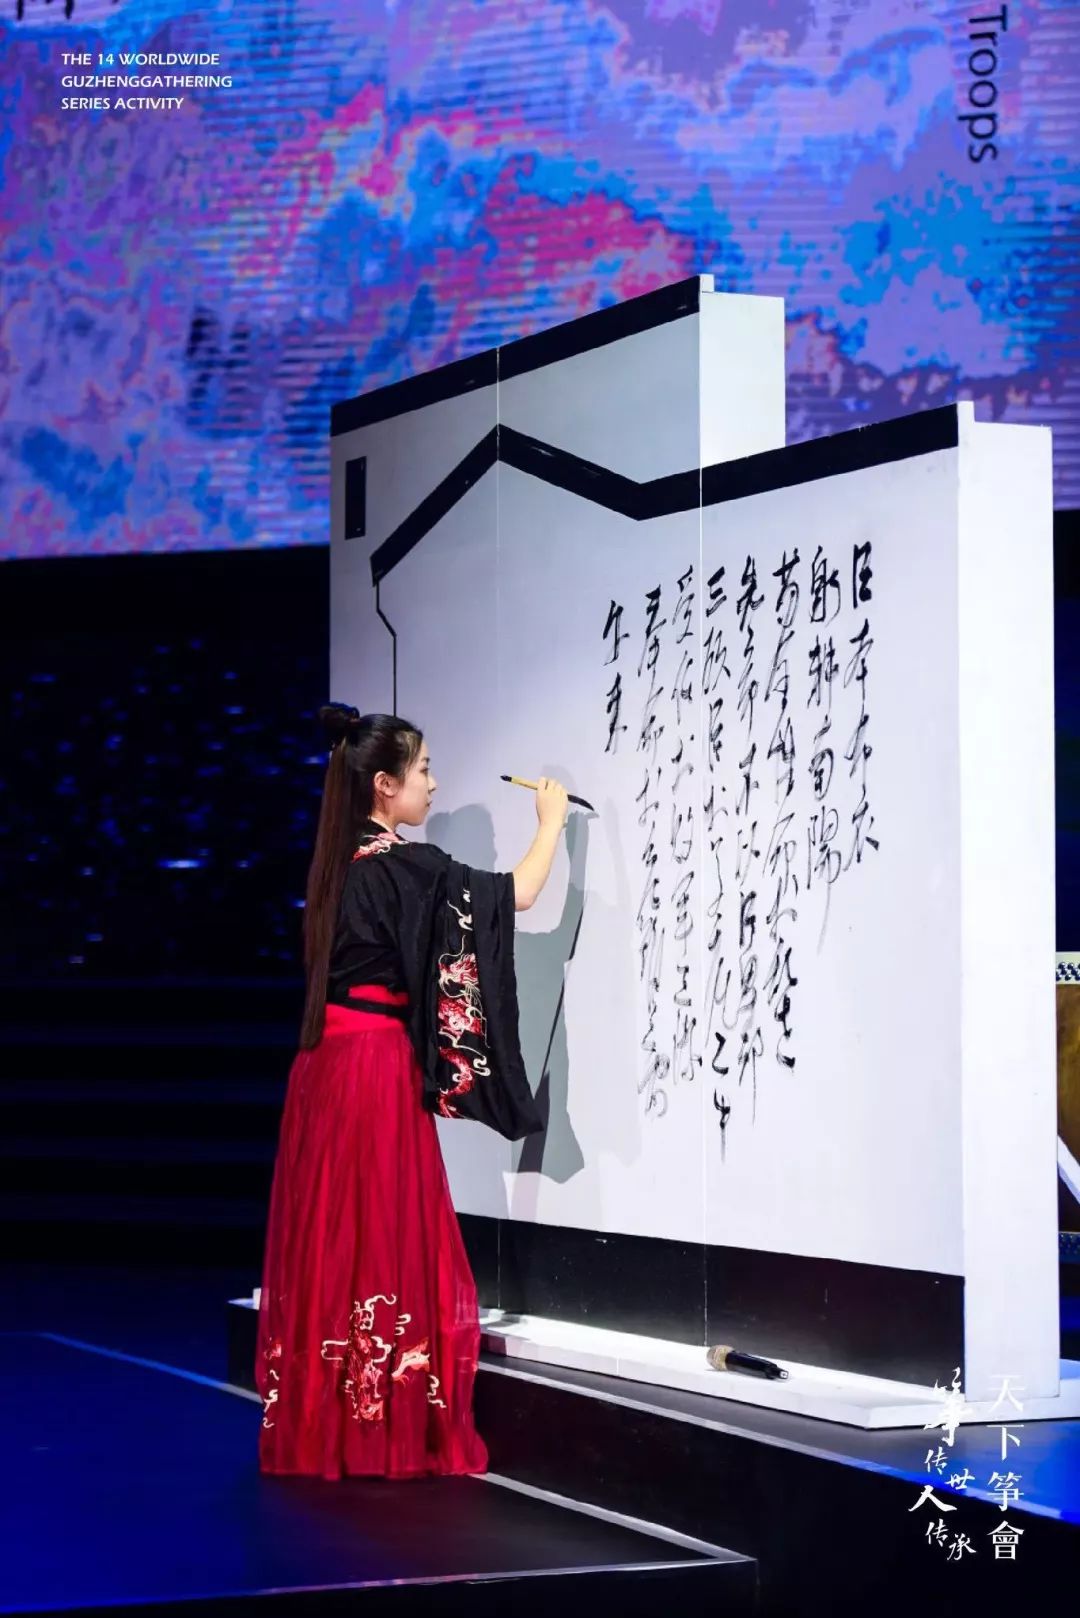 THE 14 WORLDWIDE
GUZHENGGATHERING
SERIES ACTIVITY
Troops
臣本布衣
躬耕南陽
苟全性命於亂世
先帝不以臣卑鄙
三顾臣於草庐之中
受任於败军之際
奉命於危難之間
尔来
天下筝會
筝传世人传承